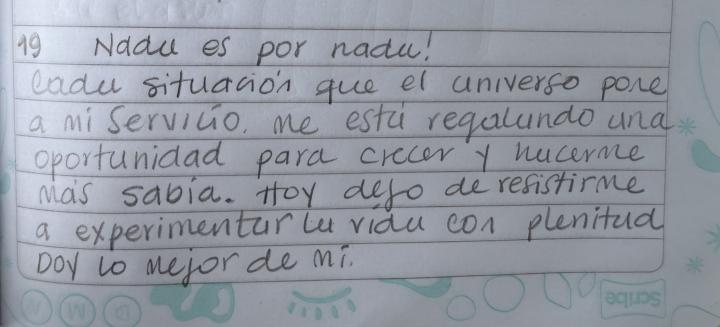 19 Nada es por nada!
Cada situación que el universo pone
a mi servicio. me está regalando una
oportunidad para crecer y hacerme
más sabia. Hoy dejo de resistirme
a experimentar la vida con plenitud
Doy lo mejor de mi.
Scribe